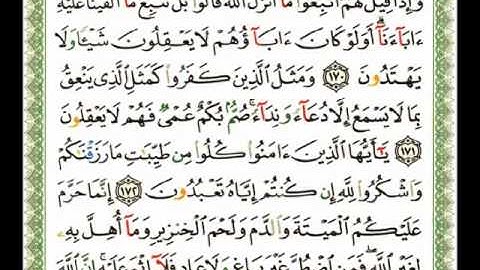 وَإِذَا قِيلَ لَهُمُ ٱتَّبِعُوا۟ مَآ أَنزَلَ ٱللَّهُ قَالُوا۟ بَلْ نَتَّبِعُ مَآ أَلْفَيْنَا عَلَيْهِ
ءَابَآءَنَآ أَوَلَوْ كَانَ ءَابَآؤُهُمْ لَا يَعْقِلُونَ شَيْـًٔا وَلَا
يَهْتَدُونَ ١٧٠ وَمَثَلُ ٱلَّذِينَ كَفَرُوا۟ كَمَثَلِ ٱلَّذِى يَنْعِقُ
بِمَا لَا يَسْمَعُ إِلَّا دُعَآءً وَنِدَآءً صُمٌّۢ بُكْمٌ عُمْىٌ فَهُمْ لَا يَعْقِلُونَ
١٧١ يَـٰٓأَيُّهَا ٱلَّذِينَ ءَامَنُوا۟ كُلُوا۟ مِن طَيِّبَـٰتِ مَا رَزَقْنَـٰكُمْ
وَٱشْكُرُوا۟ لِلَّهِ إِن كُنتُمْ إِيَّاهُ تَعْبُدُونَ ١٧٢ إِنَّمَا حَرَّمَ
عَلَيْكُمُ ٱلْمَيْتَةَ وَٱلدَّمَ وَلَحْمَ ٱلْخِنزِيرِ وَمَآ أُهِلَّ بِهِۦ
لِغَيْرِ ٱللَّهِ فَمَنِ ٱضْطُرَّ غَيْرَ بَاغٍ وَلَا عَادٍ فَلَآ إِثْمَ عَلَيْهِ إِنَّ ٱللَّهَ